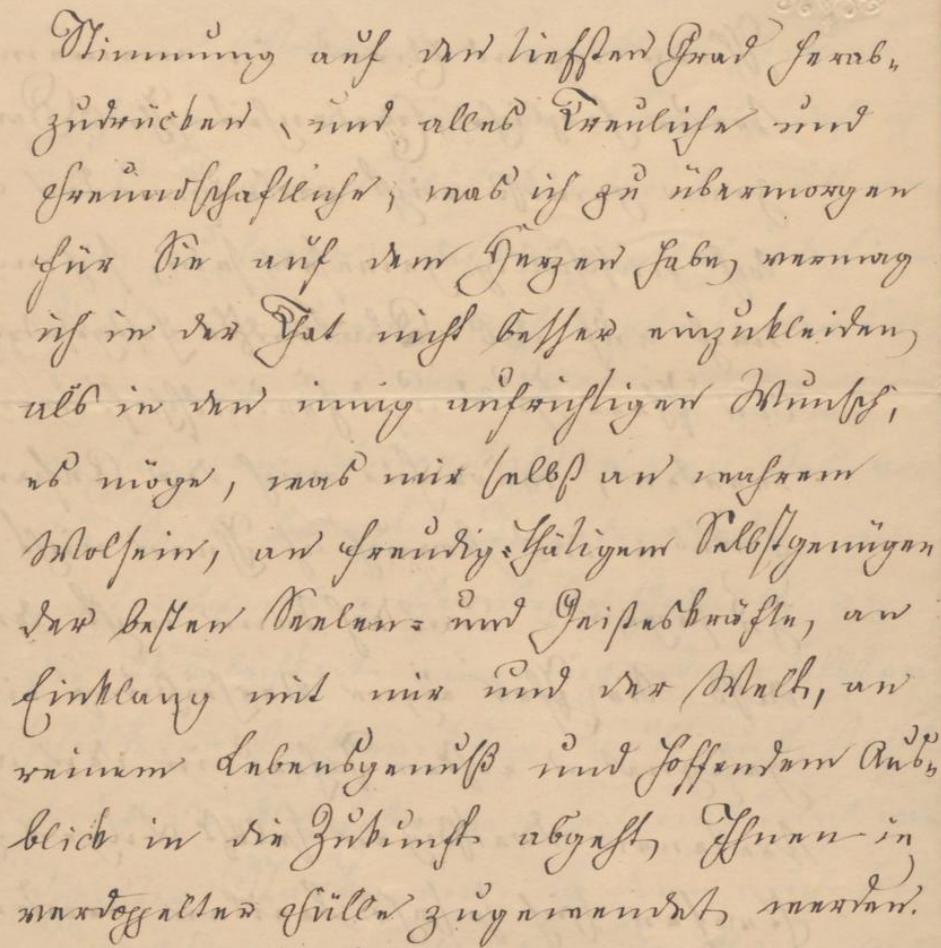 Stimmung auf den tiefsten Grad herab-
zudrücken, und alles Treuliche und
Freundschaftliche, was ich zu übermorgen
für Sie auf dem Herzen habe, vermag
ich in der That nicht besser einzukleiden,
als in den innig aufrichtigen Wunsch,
es möge, was mir selbst an wahrem
Wolsein, an freudig-thätigem Selbstgenügen
der besten Seelen- und Geisteskräfte, an
Einklang mit mir und der Welt, an
reinem Lebensgenuß und hoffendem Aus-
blick in die Zukunft abgeht, Ihnen in
verdoppelter Fülle zugewendet werden.